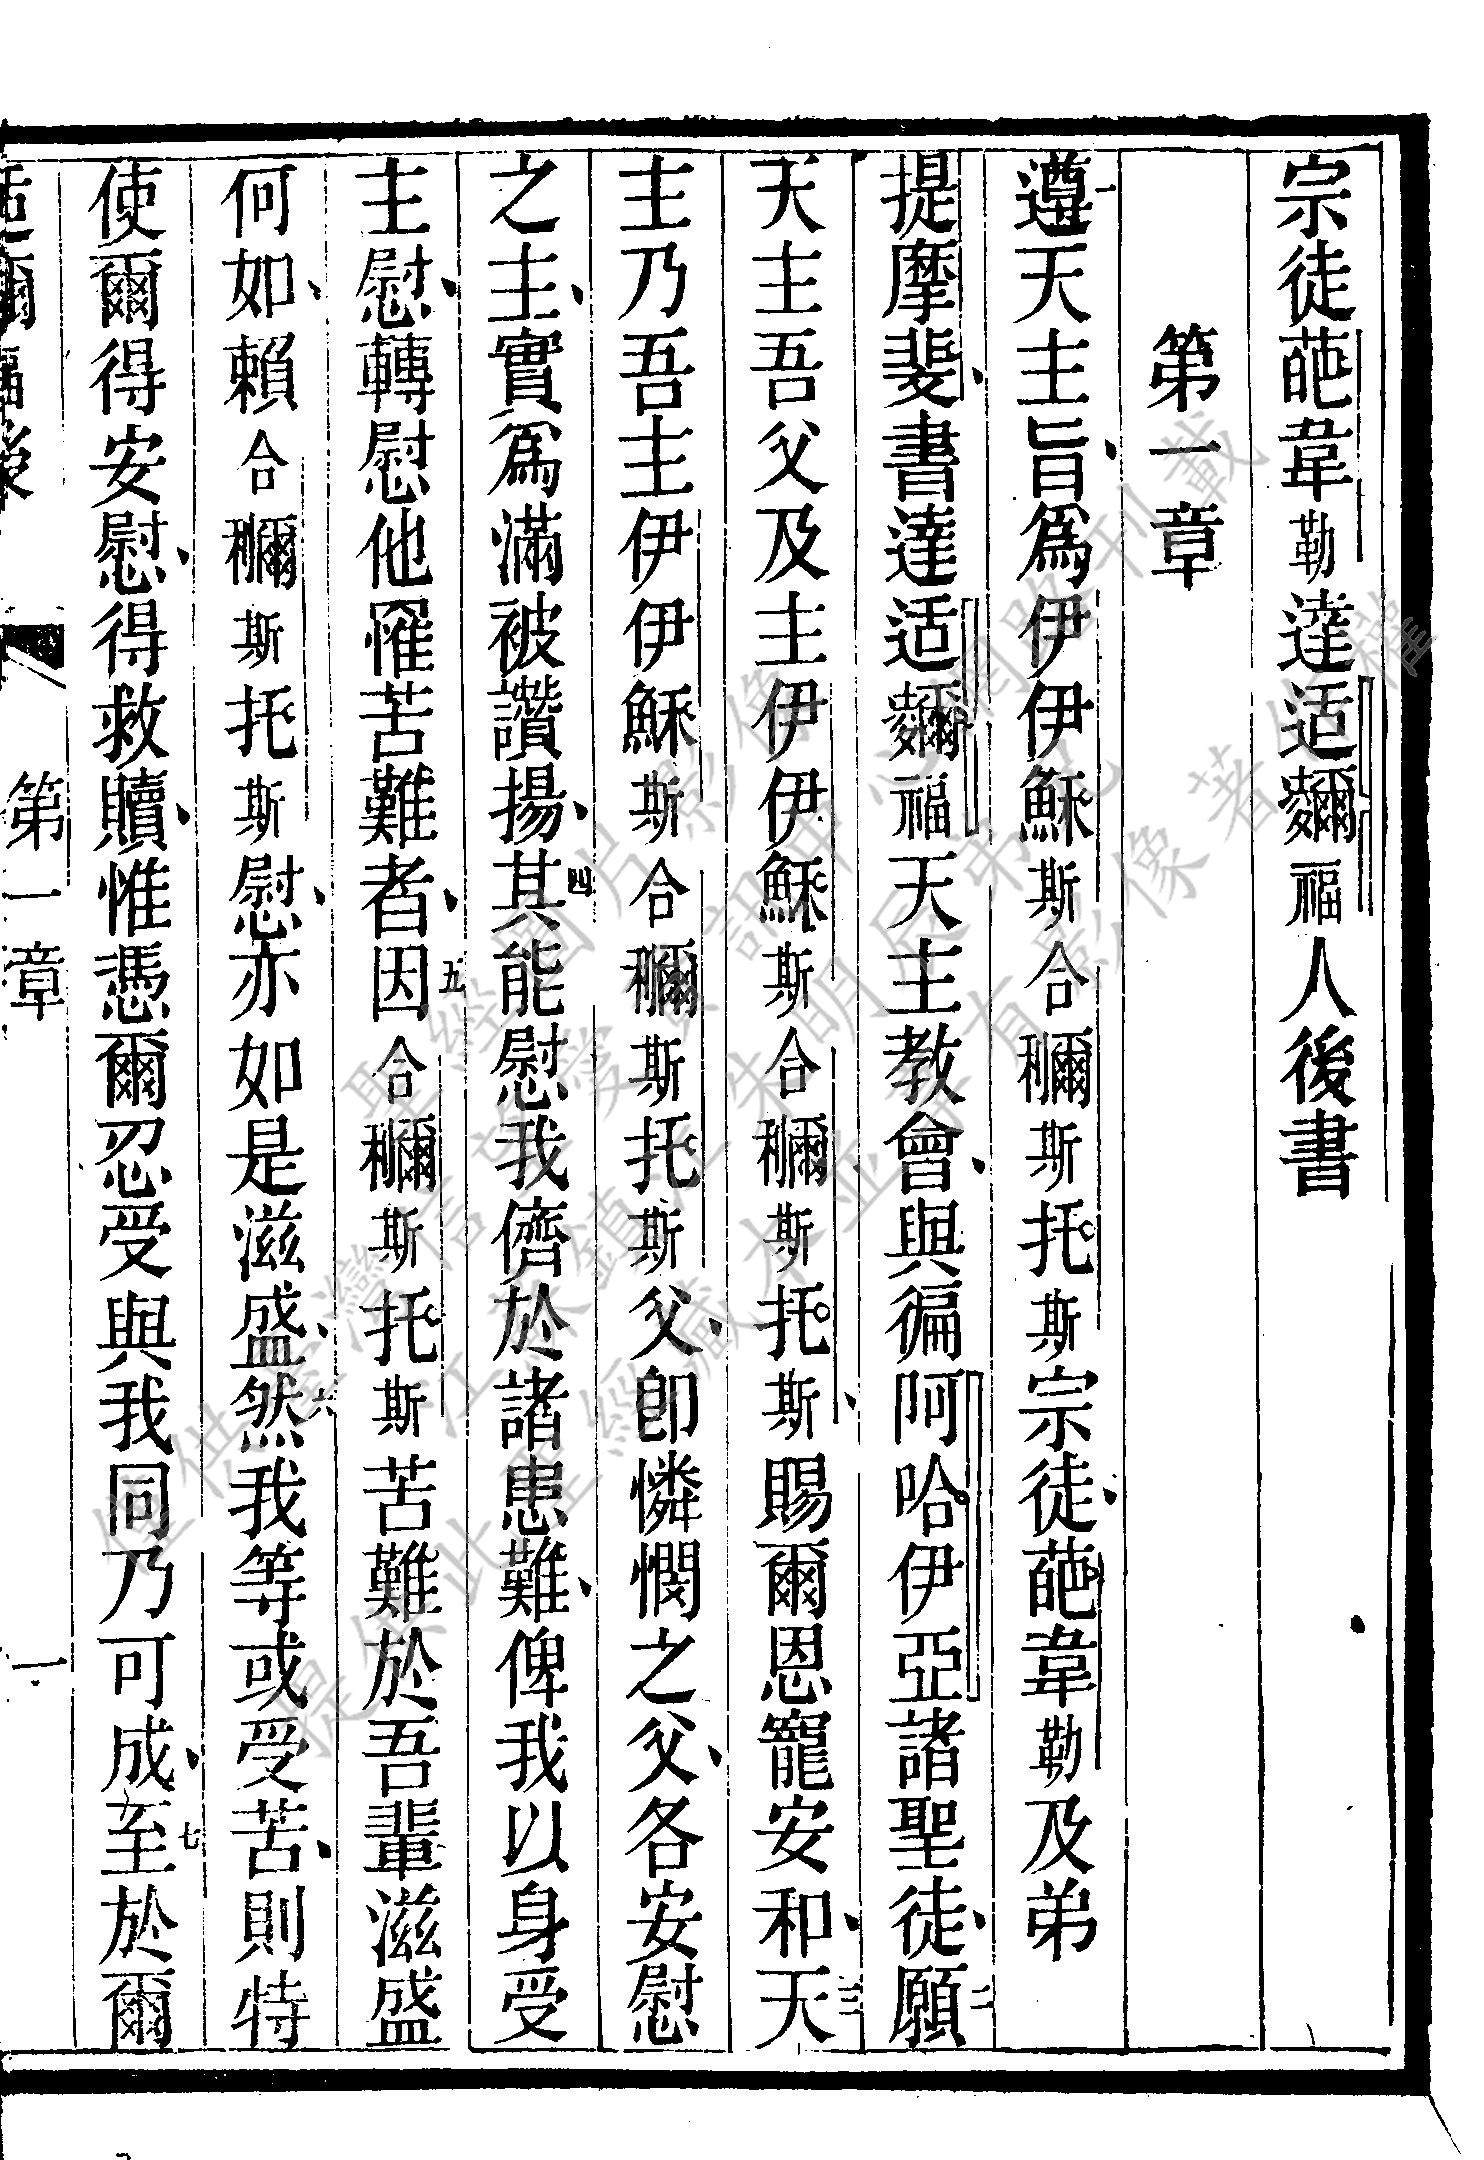 宗徒葩韋勒達适⿰麥爾福人後書
第一章
一遵天主旨爲伊伊穌斯合穪斯托斯宗徒葩韋勒及弟
提摩斐書達适⿰麥爾福天主教會與徧阿哈伊亞諸聖徒二願
天主吾父及主伊伊穌斯合穪斯托斯賜爾恩寵安和三天
主乃吾主伊伊穌斯合穪斯托斯父卽憐憫之父各安慰
之主實爲滿被讚揚四其能慰我儕於諸患難俾我以身受
主慰轉慰他罹苦難者五因合穪斯托斯苦難於吾輩滋盛
何如賴合穪斯托斯慰亦如是滋盛六然我等或受苦則特
使爾得安慰得救贖惟憑爾忍受與我同乃可成七至於爾
第一章
一